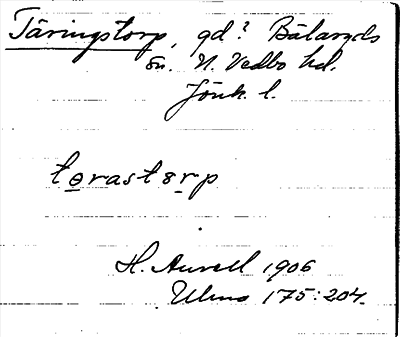 Täringstorp, gd? Bälaryds
sn. N. Vedbo hd.
Jönk. l.
tɵrastɵrp
H. Aurell 1906
Ulma 175:204.